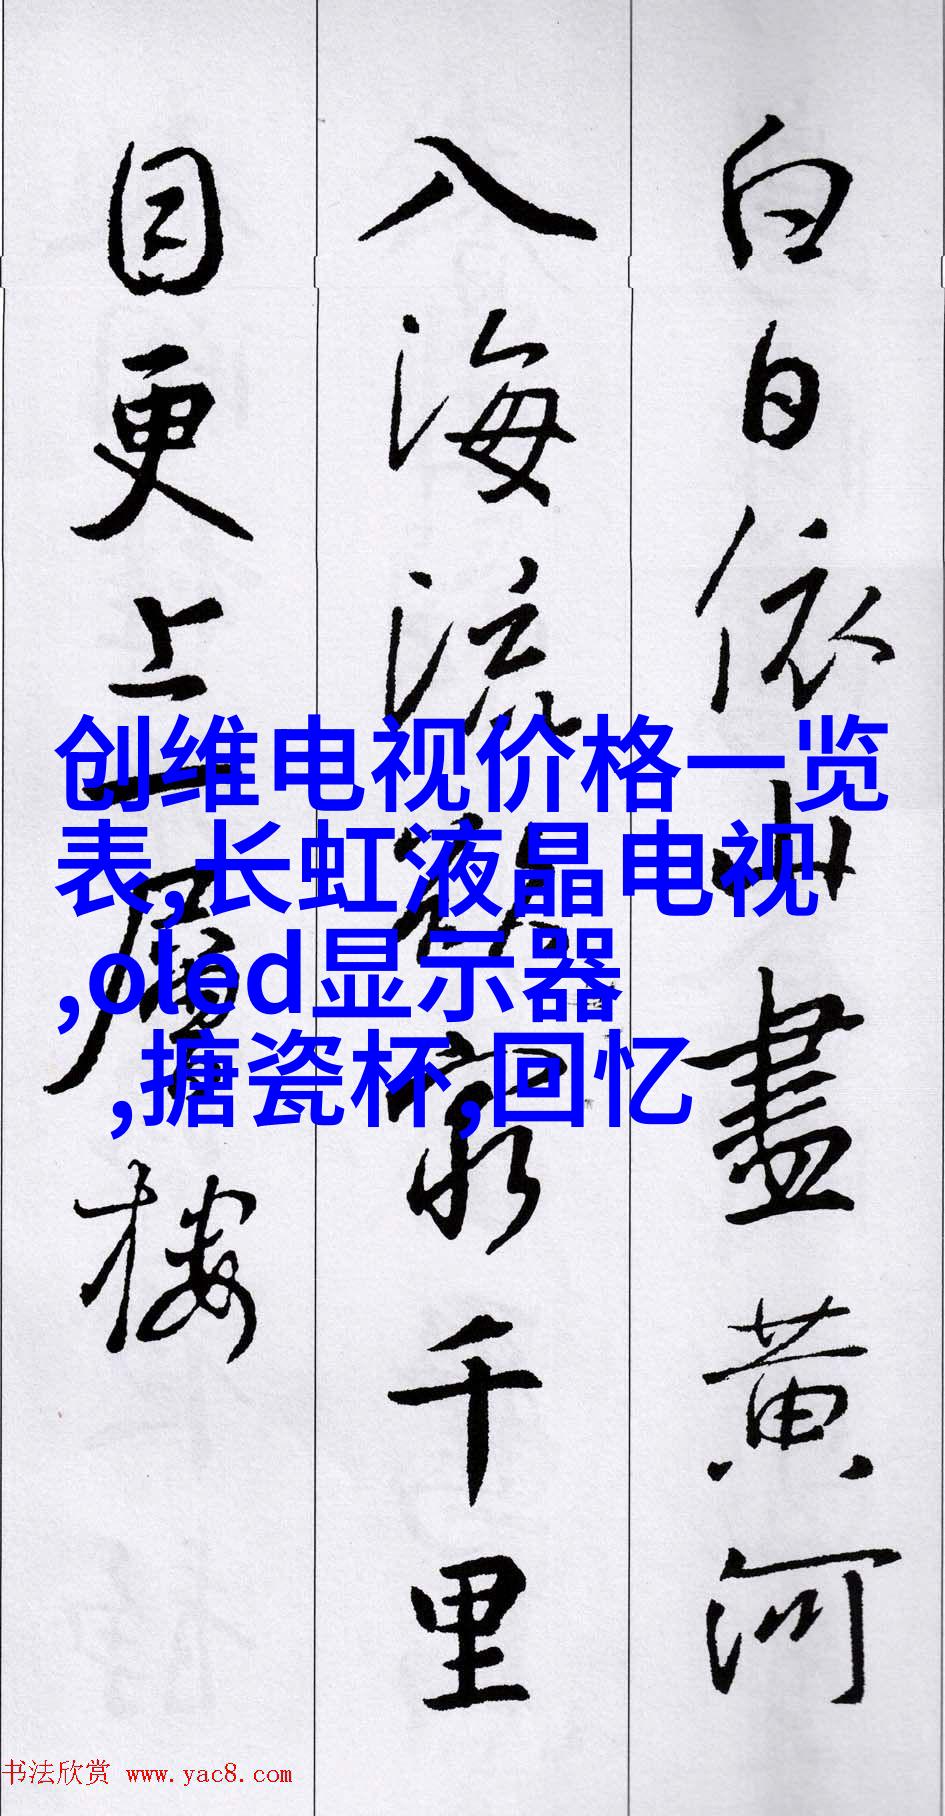 白日依山盡黄河
入海流欲窮千里
目更上一層楼
创维电视价格一览
表,长虹液晶电视
,oled显示器
,搪瓷杯,回忆
书法欣赏 www.yac8.com